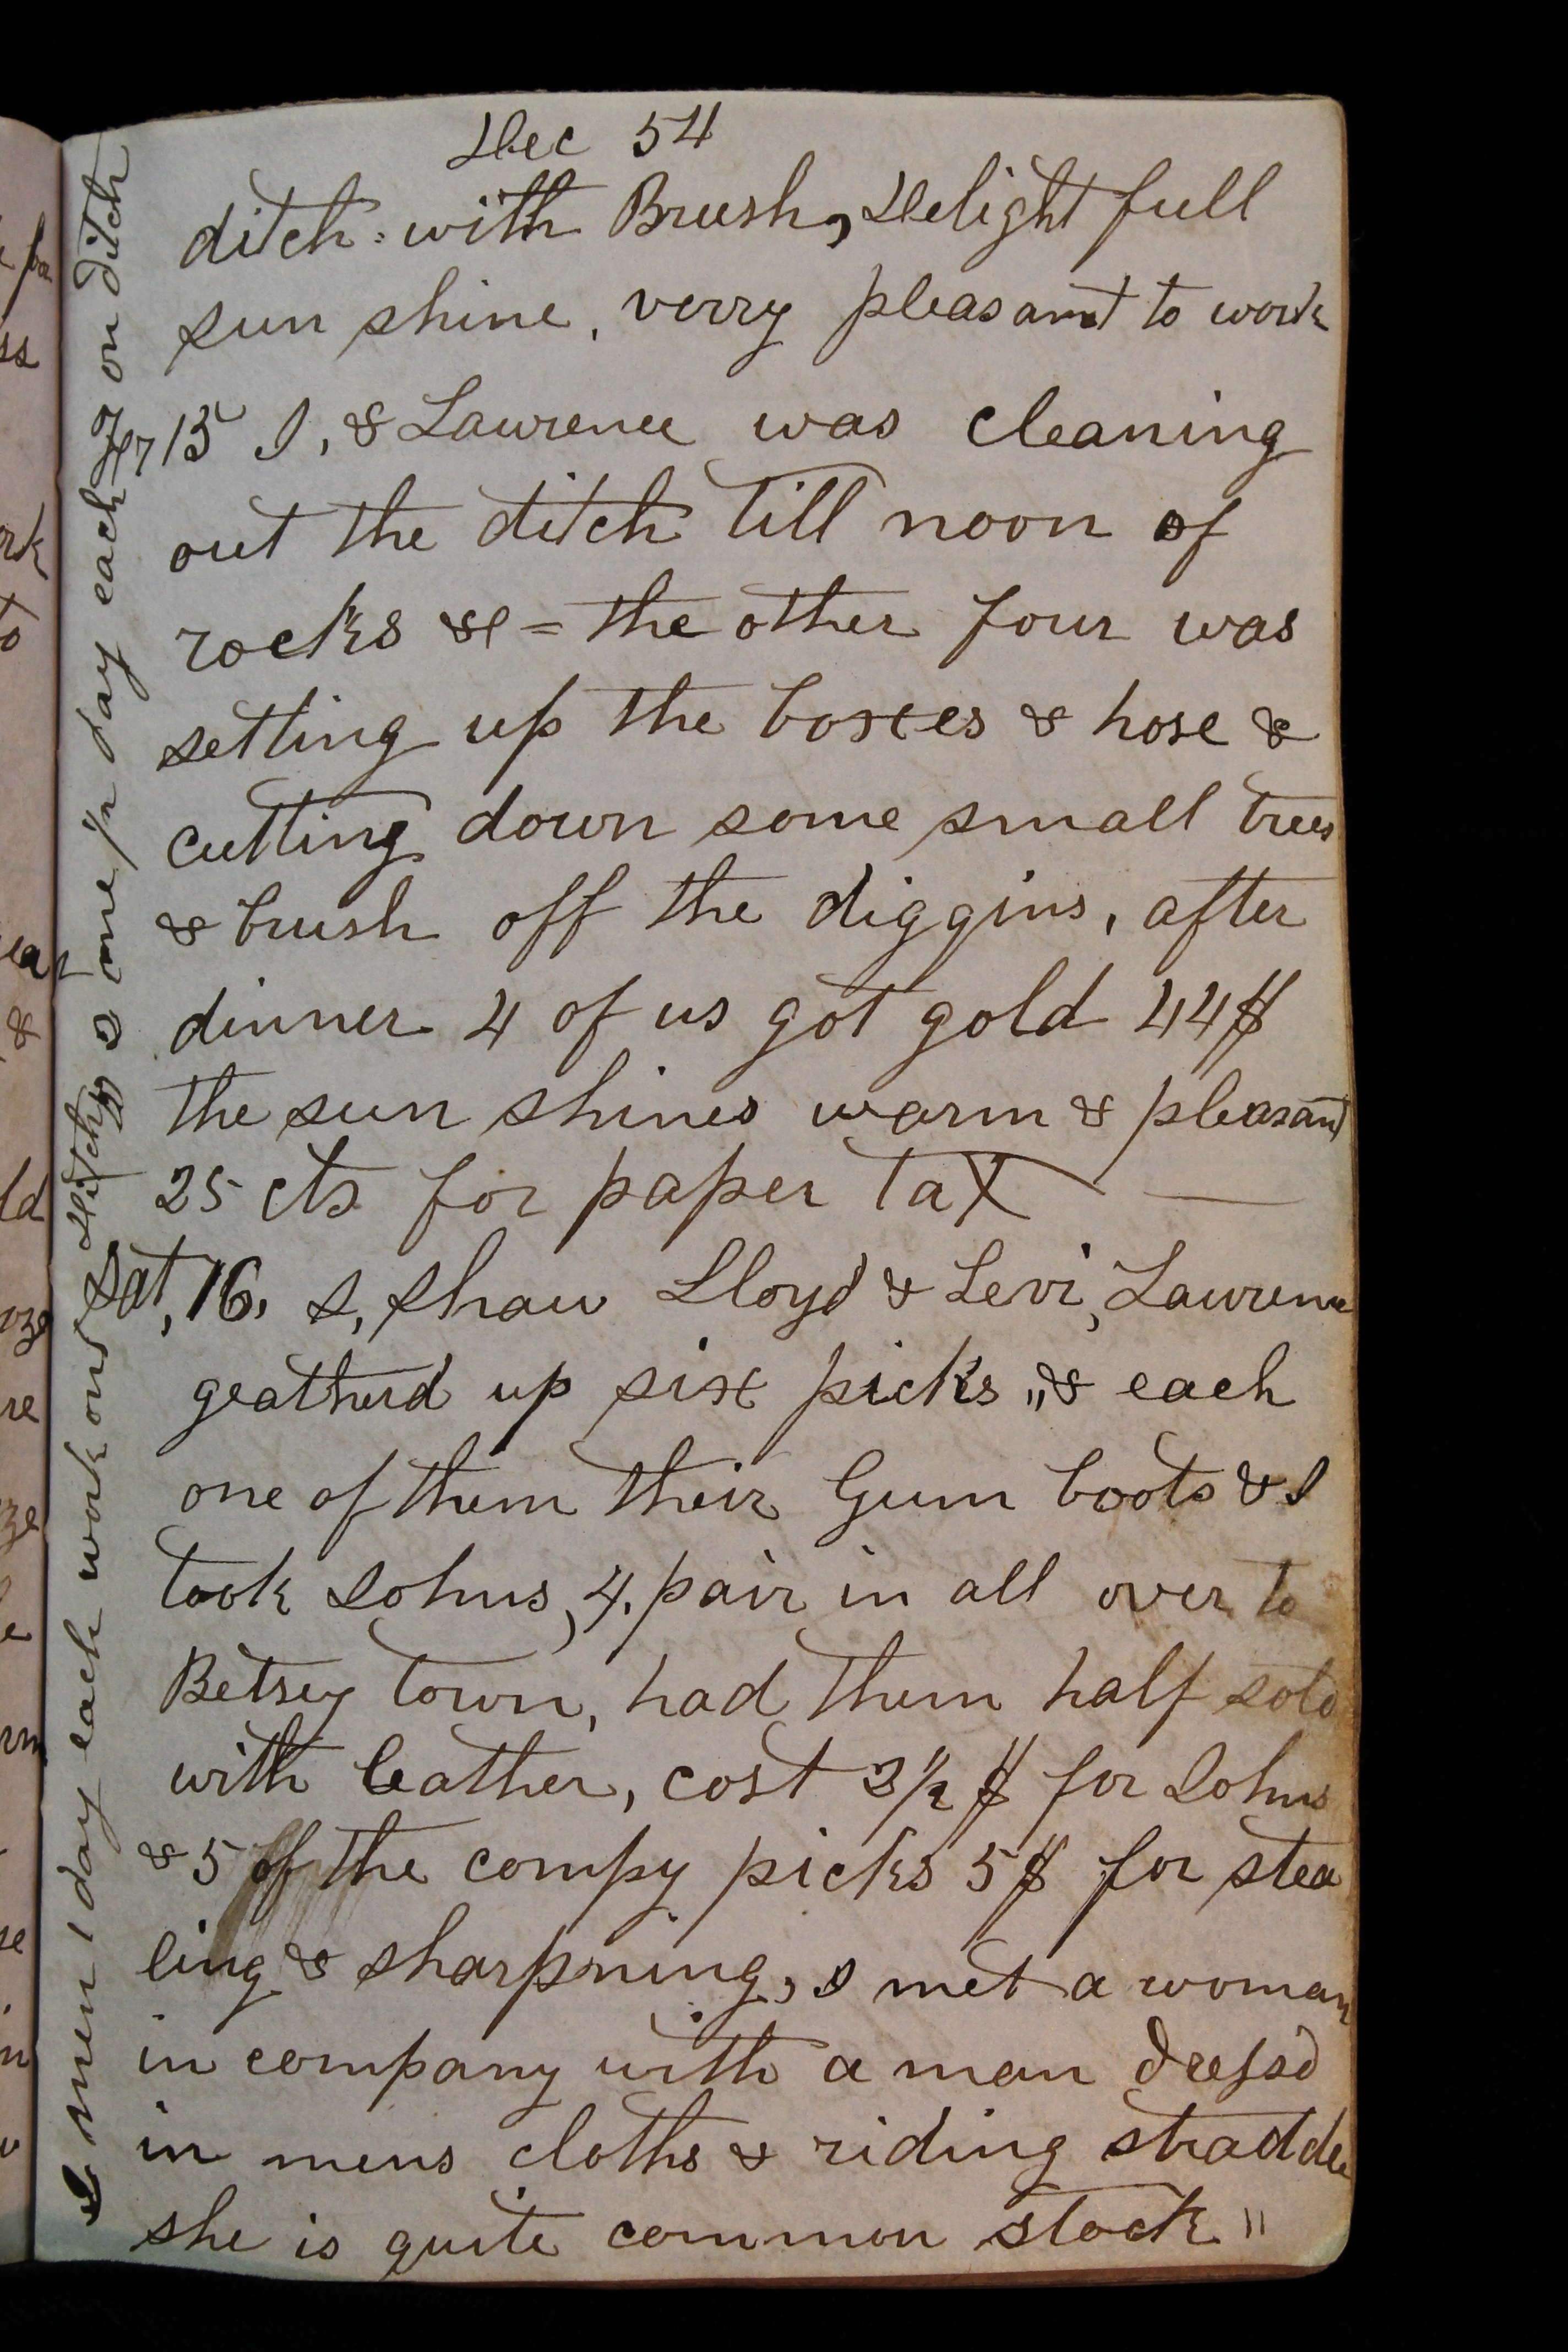 Dec 54
ditch with Brush, Delight full
sun shine, verry pleasant to work
Fr 15 I, & Lawrence was cleaning
out the ditch till noon of
rocks &c = the other four was
setting up the boxes & hose &
cutting down some small trees
& brush off the diggins, after
dinner 4 of us got gold 44$
the sun shines warm & pleasant
25 cts for paper tax —
Sat, 16. S, Shaw Lloyd & Levi, Lawrence
geatherd up six picks ,, & each
one of them their Gum boots & I
took Johns, 4. pair in all over to
Betsey town, had them half sold
with leather, cost 3 1/2 $ for Johns
& 5 of the compy picks 5$ for stea
ling & sharpning, I met a woman
in company with a man dressd
in mens cloths & riding straddle
she is quite common stock "
men 1 day each work on
& one 1/2 day each on ditch